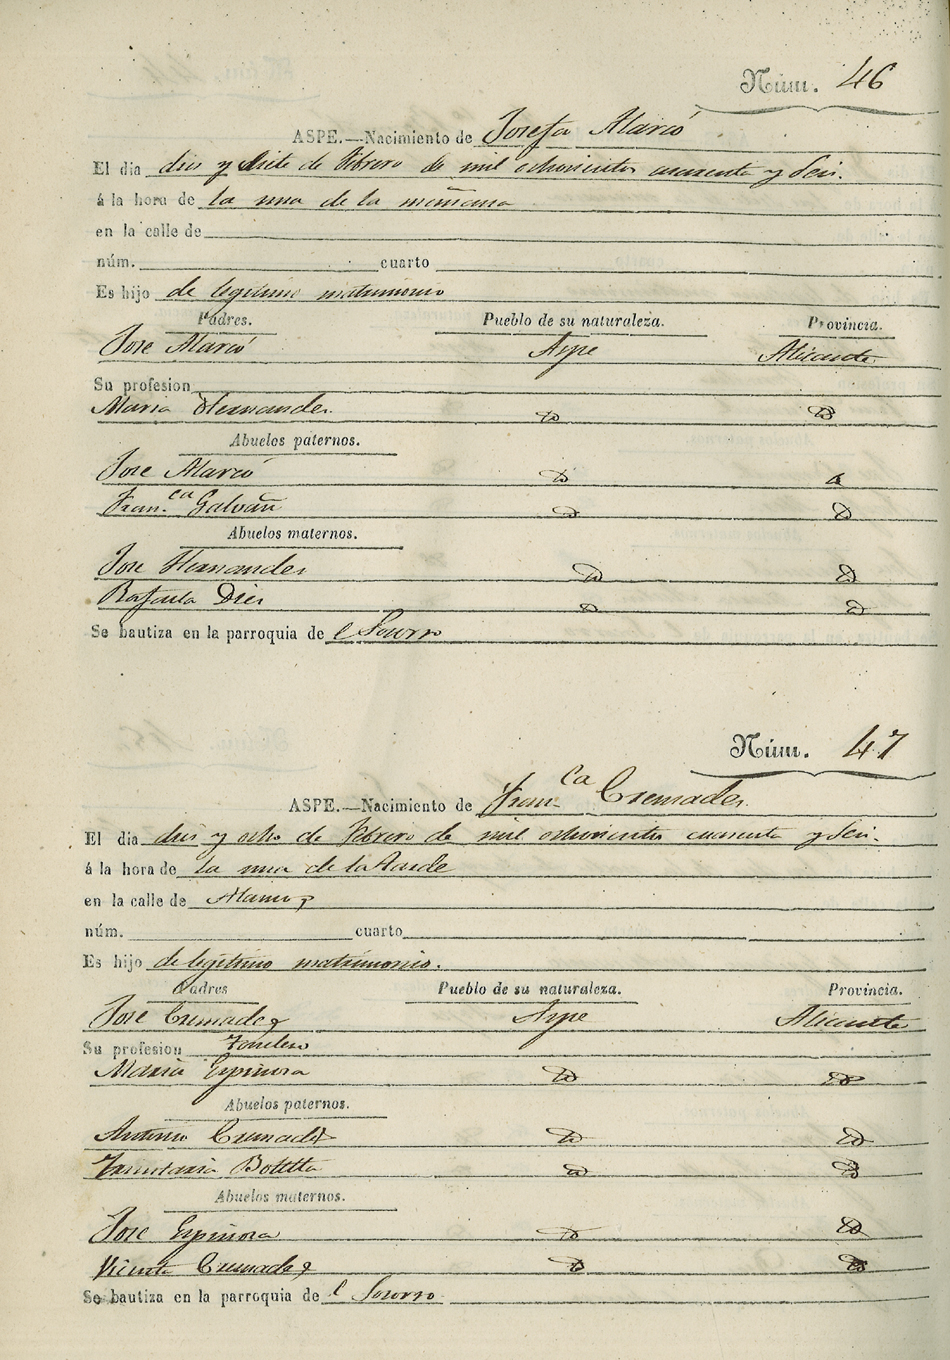 Núm. 46
ASPE.—Nacimiento de Josefa Alarcó
El dia dies y siete de febrero de mil ochocientos cuarenta y seis.
á la hora de la una de la mañana
en la calle de
núm. cuarto
Es hijo de legitimo matrimonio
Padres. Pueblo de su naturaleza. Provincia.
Jose Alarcó Aspe Alicante
Su profesion
Maria Hernandes. Do Do
Abuelos paternos.
Jose Alarcó Do Do
Fran.ca Galvañ Do Do
Abuelos maternos.
Jose Hernandes Do Do
Rafaela Dies Do Do
Se bautiza en la parroquia de l Socorro
Núm. 47
ASPE.—Nacimiento de Fran.ca Cremades.
El dia dies y ocho de febrero de mil ochocientos cuarenta y seis.
á la hora de la una de la tarde
en la calle de Alamos
núm. cuarto
Es hijo de legitimo matrimonio.
Padres Pueblo de su naturaleza. Provincia.
Jose Cremades Aspe Alicante
Su profesion
Maria Espinosa Do Do
Abuelos paternos.
Antonio Cremades Do Do
Botella Do Do
Abuelos maternos.
Jose Espinosa Do Do
Vicenta Cremades Do Do
Se bautiza en la parroquia de l Socorro